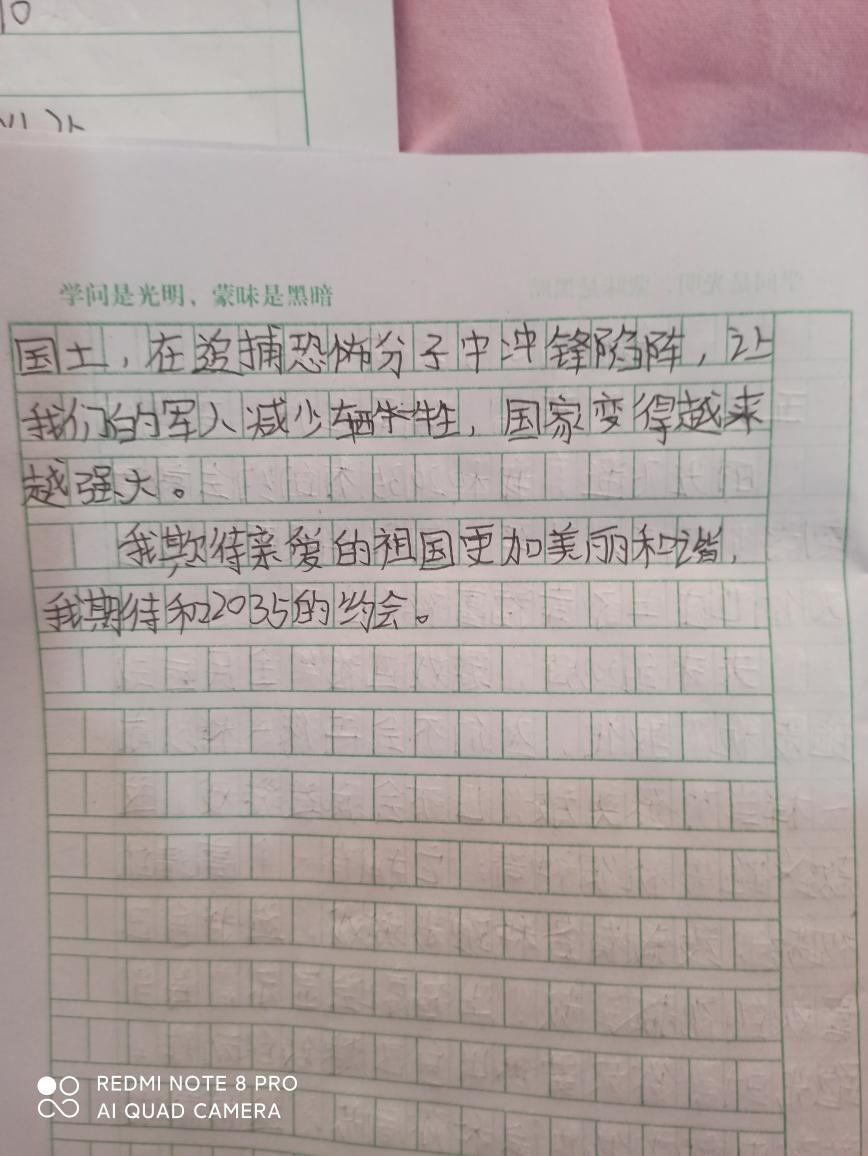 10
学问是光明，蒙昧是黑暗
国土，在追捕恐怖分子中冲锋陷阵，让
我们的军人减少牺牲，国家变得越来
越强大。
我期待亲爱的祖国更加美丽和谐，
我期待和2035的约会。
REDMI NOTE 8 PRO
AI QUAD CAMERA